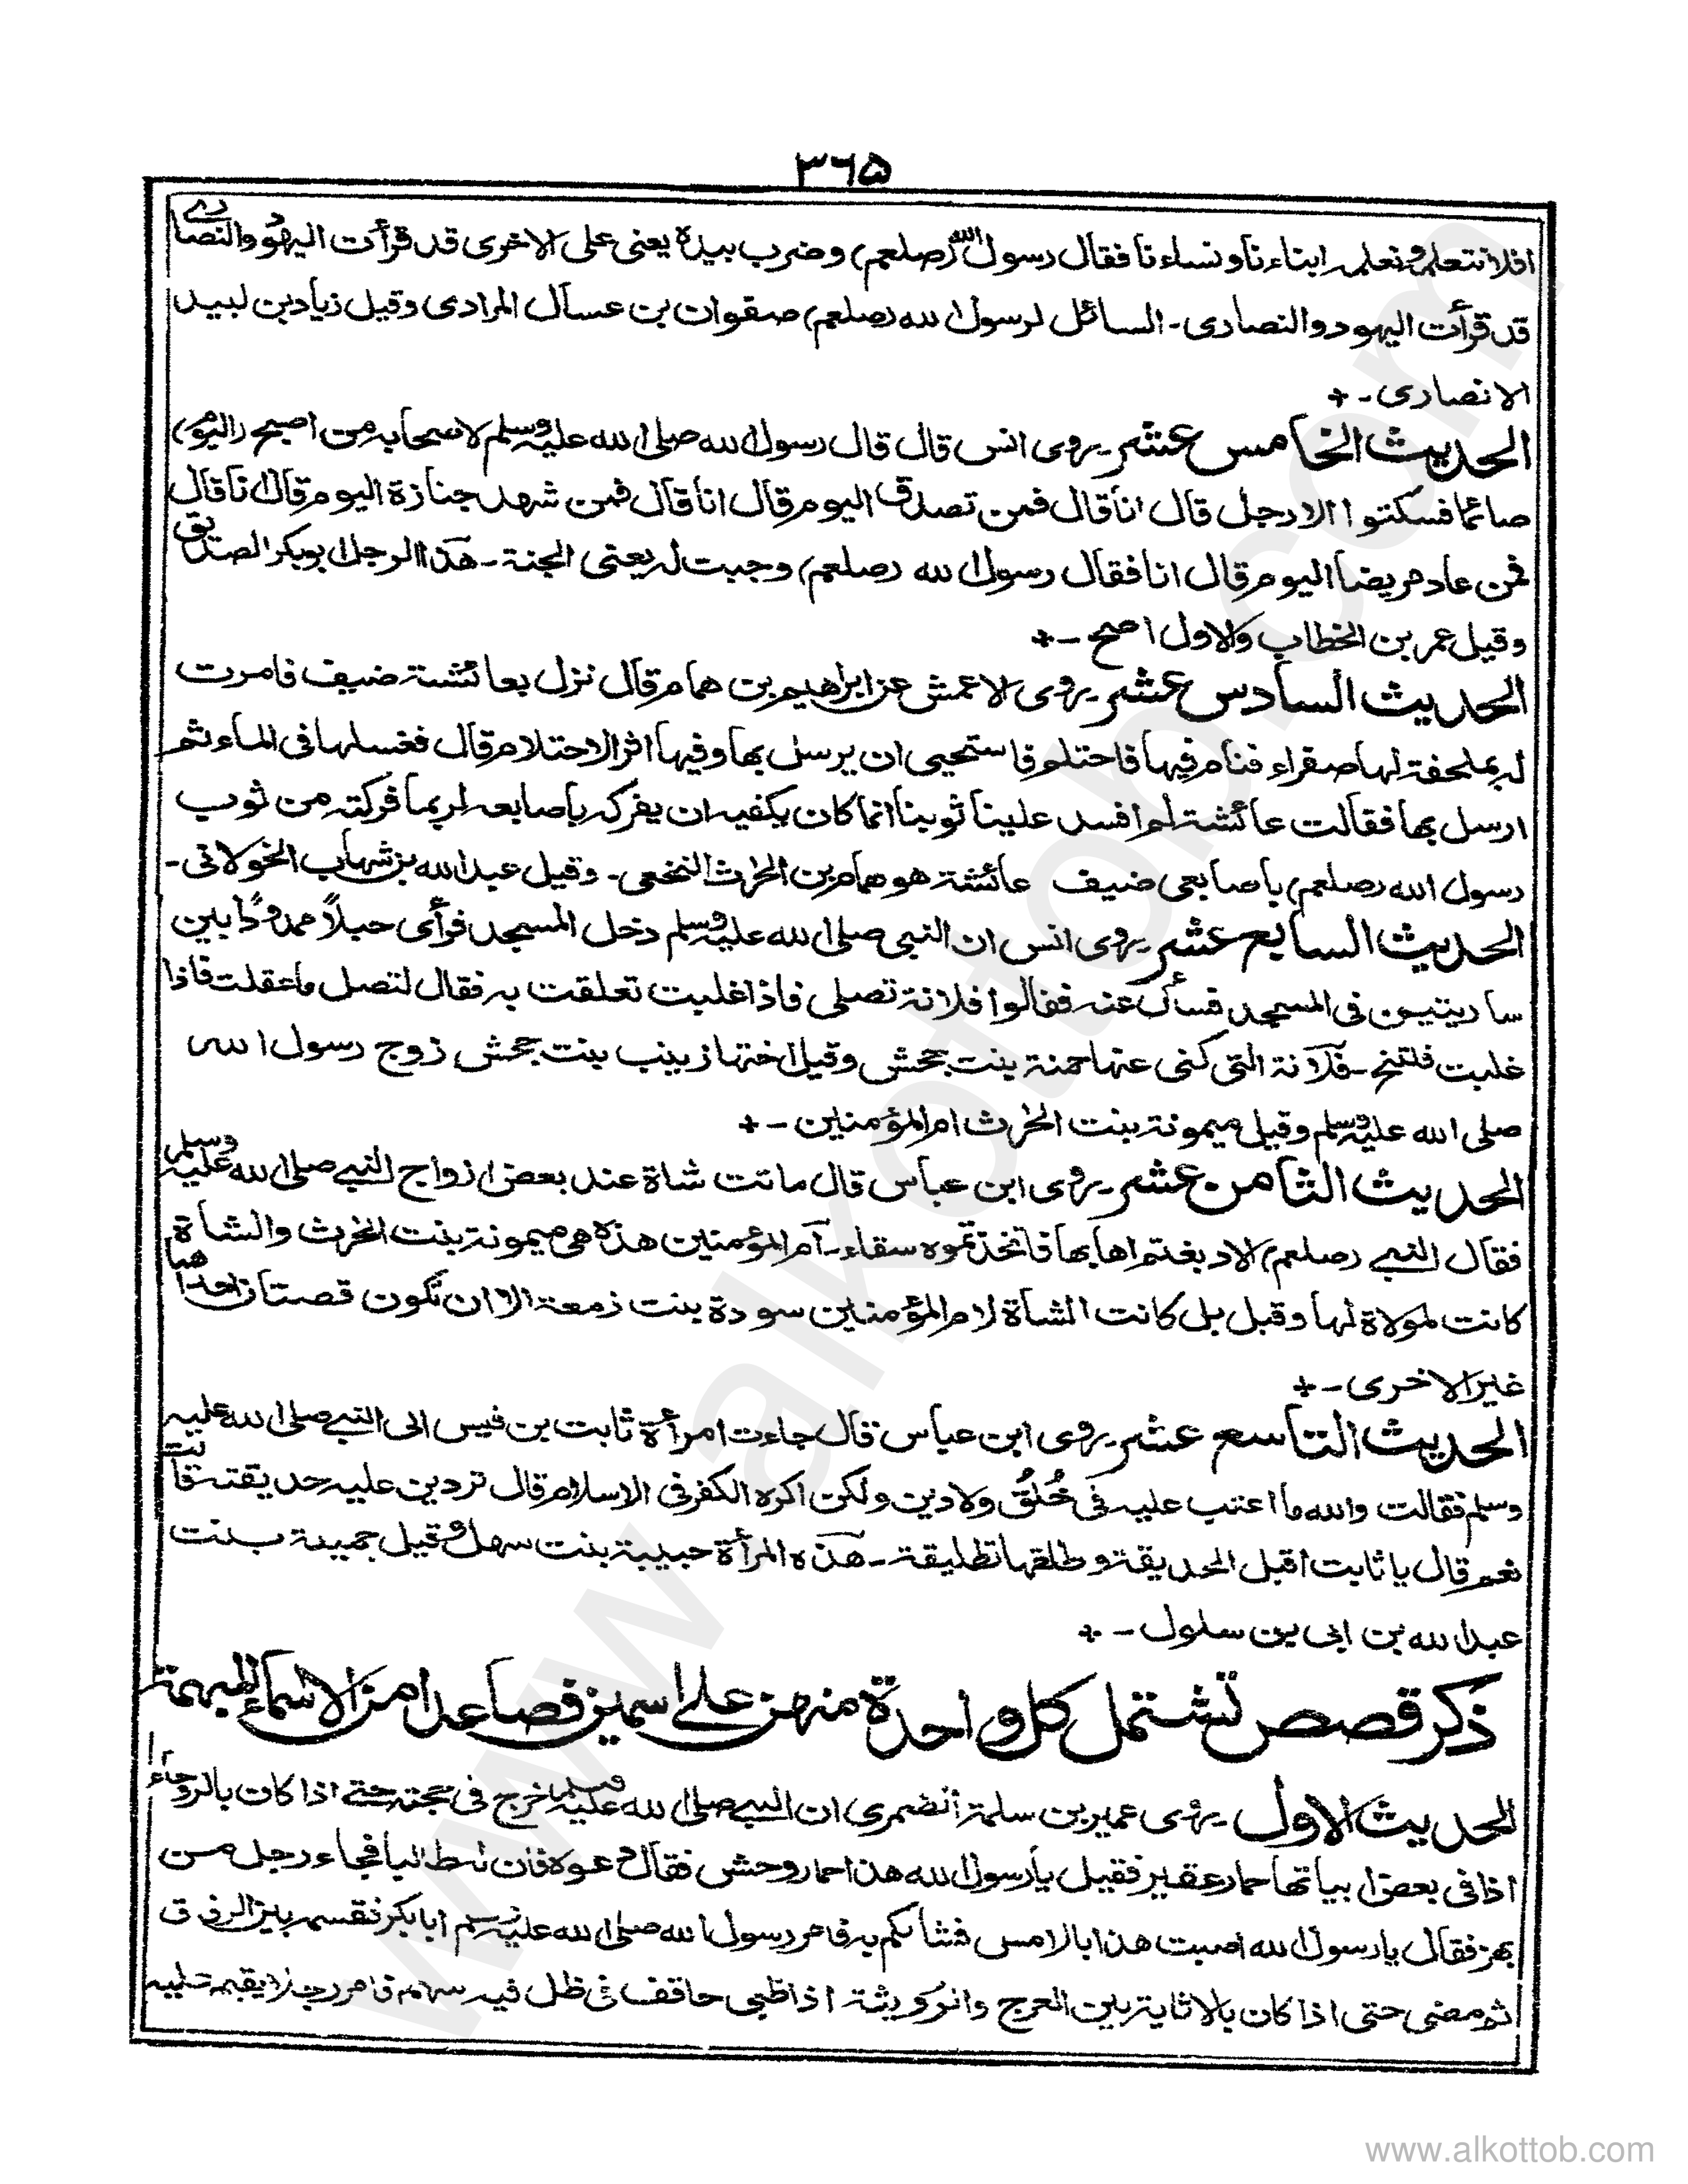 ٣٦٥
افلا نتعلم ونعلم ابناء نا ونساء نا فقال رسول الله (صلعم) وضرب بيده يعنى على الاخرى قد قرأت اليهود والنصارے
قد قرأت اليهود والنصارى ـ السائل لرسول الله (صلعم) صقوان بن عسال المرادى وقيل زياد بن لبيد
الانصارى ـ +
الحديث الخامس عشر ـ يروى انس قال قال رسول الله صلى الله عليه وسلم لاصحابه من اصبح (اليوم)
صائما فسكتوا الا رجل قال انا قال فمن تصدق اليوم قال انا قال فمن شهد جنازة اليوم قال انا قال
فمن عاد مريضا اليوم قال انا فقال رسول الله (صلعم) وجبت له يعنى الجنة ـ هذا الرجل ابو بكر الصديق
وقيل عمر بن الخطاب والاول اصح ـ +
الحديث السادس عشر ـ يروى الاعمش عن ابراهيم بن همام قال نزل بعائشة ضيف فامرت
له بملحفة لها صفراء فنام فيها فاحتلم فاستحيى ان يرسل بها وفيها اثر الاحتلام قال فغسلها فى الماء ثم
ارسل بها فقالت عائشة لم افسد علينا ثوبنا انما كان يكفيه ان يفركه باصابعه لربما فركته من ثوب
رسول الله (صلعم) باصابعى ضيف عائشة هو همام بن الحرث النخعى ـ وقيل عبد الله بن شهاب الخولانى ـ
الحديث السابع عشر ـ يروى انس ان النبى صلى الله عليه وسلم دخل المسجد فرأى حبلاً ممدودًا بين
ساريتين فى المسجد فسأل عنه فقالوا فلانة تصلى فاذا غلبت تعلقت به فقال لتصل ما عقلت فاذا
غلبت فلتنم ـ فلانة التى كنى عنها حمنة بنت جحش وقيل اختها زينب بنت جحش زوج رسول الله
صلى الله عليه وسلم وقيل ميمونة بنت الحرث ام المؤمنين ـ +
الحديث الثامن عشر ـ يروى ابن عباس قال ماتت شاة عند بعض ازواج النبے صلى الله عليه وسلم
فقال النبے (صلعم) الا دبغتم اهابها فاتخذتموه سقاء ـ ام المؤمنين هذه هى ميمونة بنت الحرث والشاة
كانت لمولاة لها وقيل بل كانت الشاة لام المؤمنين سودة بنت زمعة الا ان تكون قصتان احداهما
غير الاخرى ـ +
الحديث التاسع عشر ـ يروى ابن عباس قال جاءت امرأة ثابت بن قيس الى النبے صلى الله عليه
وسلم فقالت والله ما اعتب عليه فى خُلُق ولا دين ولكن اكره الكفر فى الاسلام قال تردين عليه حديقته قالت
نعم قال يا ثابت اقبل الحديقة وطلقها تطليقة ـ هذه المرأة حبيبة بنت سهل وقيل جميلة بنت
عبد الله بن ابى بن سلول ـ +
ذكر قصص تشتمل كل واحدة منهن على اسمين فصاعدا من الاسماء المبهمة
الحديث الاول ـ يروى عمير بن سلمة الضمرى ان النبے صلى الله عليه وسلم خرج فى حجته حتے اذا كان بالروحاء
اذا فى بعض ابياتها حمار عقير فقيل يا رسول الله هذا حمار وحش فقال دعوه فان لط البا فجاء رجل من
بهز فقال يا رسول الله اصبت هذا بالامس فشانكم به فامر رسول الله صلى الله عليه وسلم ابا بكر فقسمه بين الرفاق
ثم مضى حتى اذا كان بالاثاية بين العرج والرويثة اذا ظبى حاقف فى ظل فيه سهم فامر رجلا يقيم عليه
www.alkottob.com